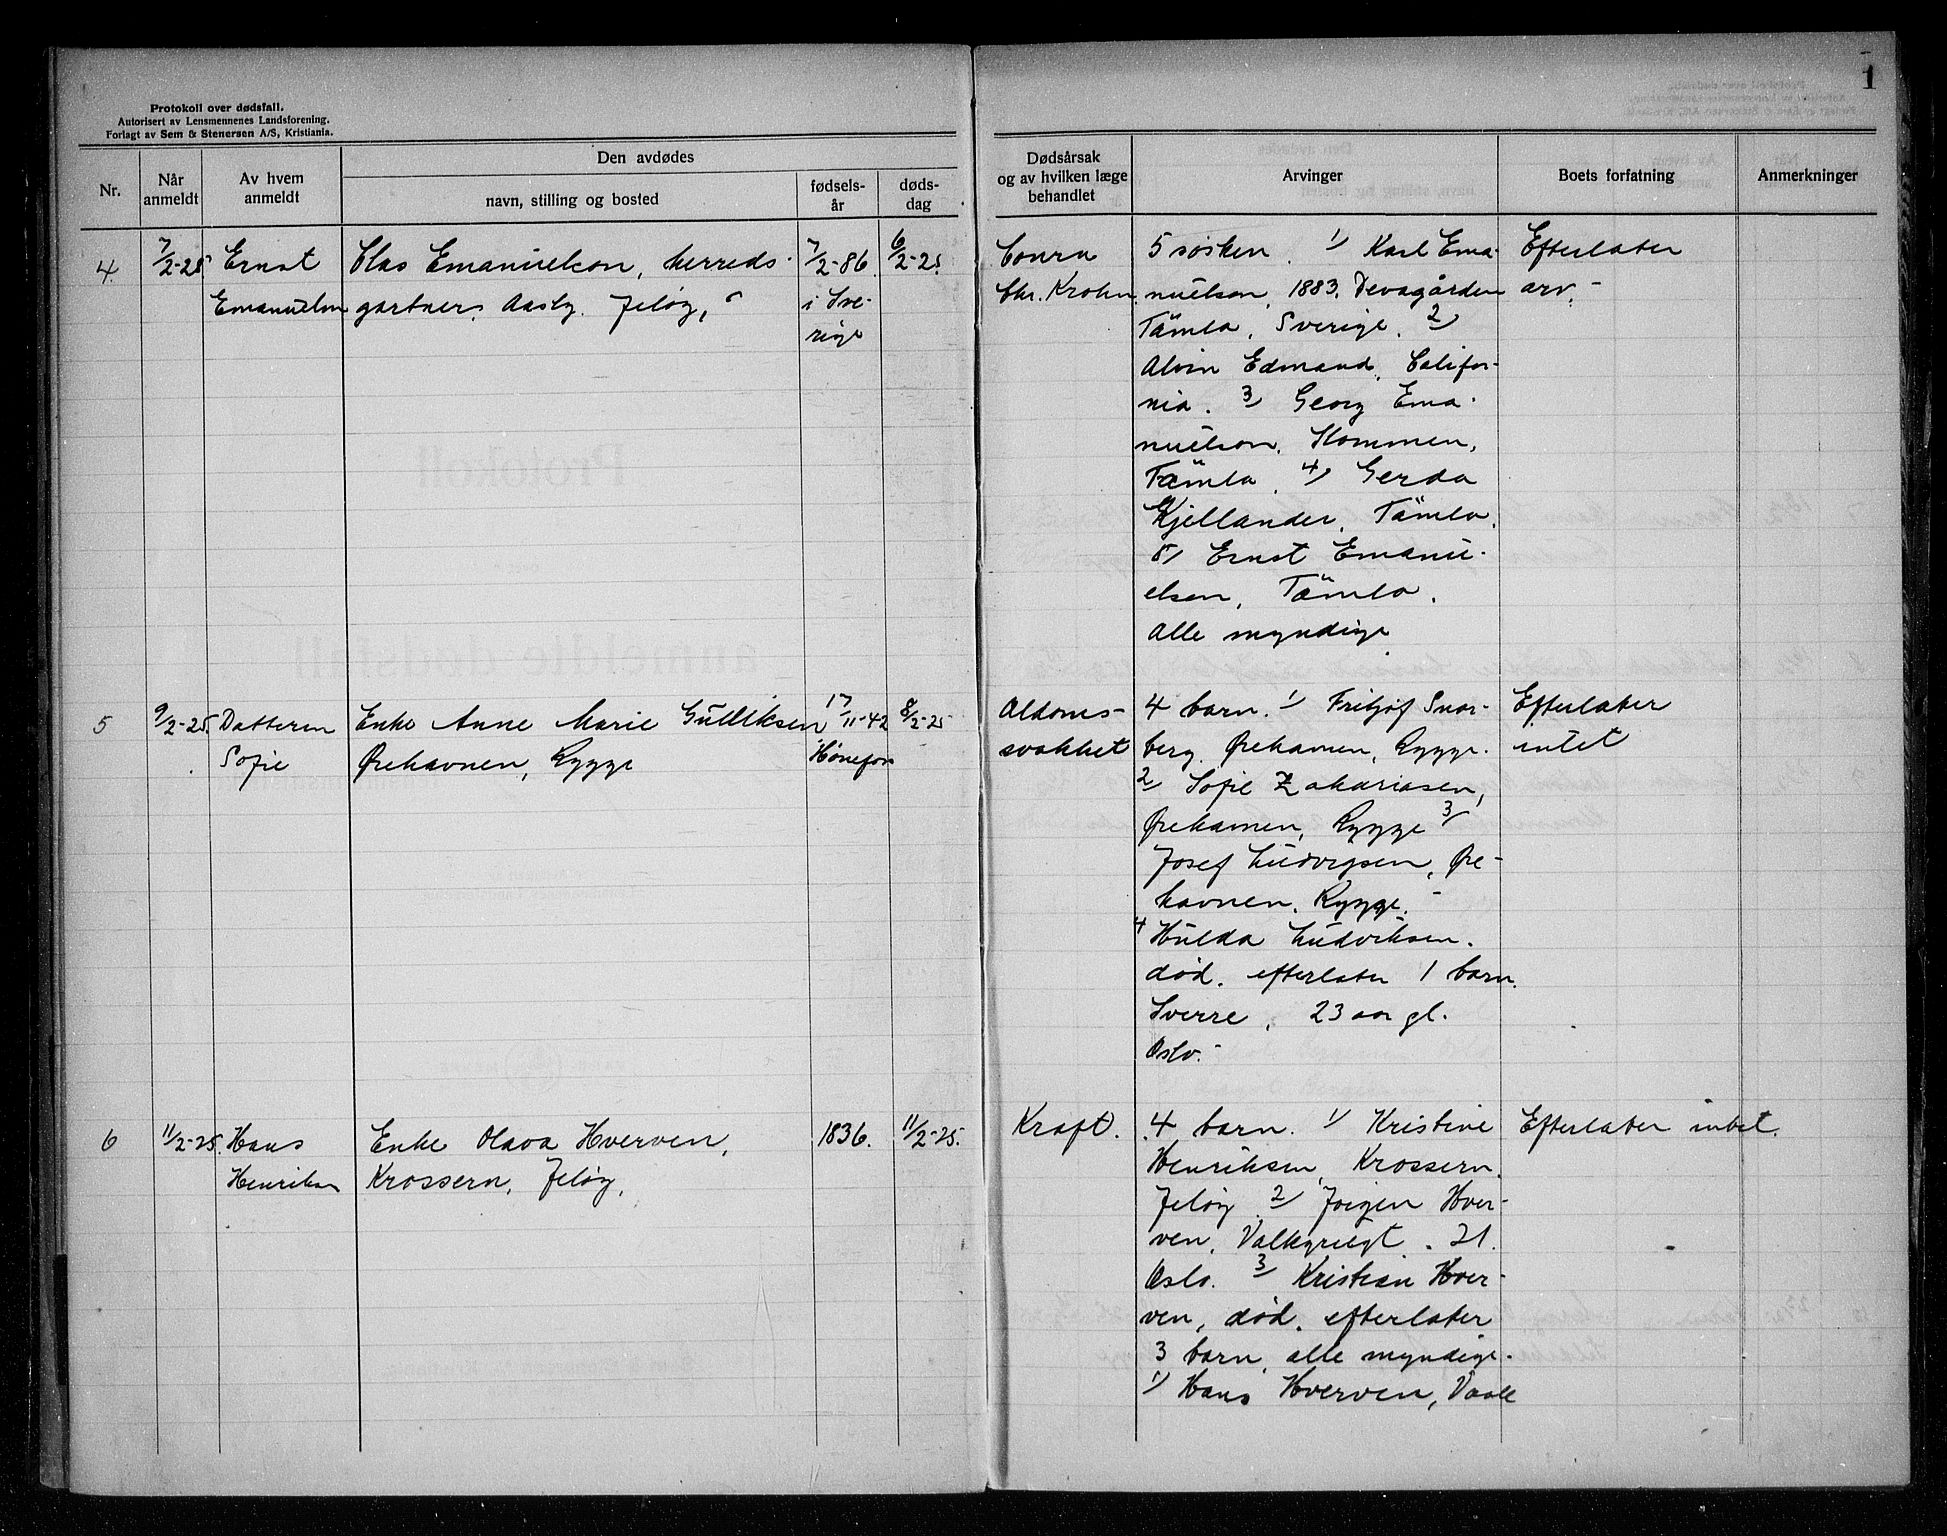 Protokoll over dødsfall.
Autorisert av Lensmennenes Landsforening.
Forlagt av Sem & Stenersen A/S, Kristiania.
1
Nr.
Når anmeldt
Av hvem anmeldt
Den avdødes
navn, stilling og bosted
fødsels-år
døds-dag
Dødsårsak og av hvilken læge behandlet
Arvinger
Boets forfatning
Anmerkninger
4.
7/2-25
Ernst
Emanuelson
Clas Emanuelson, herreds-
gartner, Aasly, Jeløy,
7/2-86.
i Sve-
rige
6/2-25
Chr. Krohn
5 søsken. 1/ Karl Ema-
nuelson, 1883, Devagården
Tämla, Sverige. 2/
Alvin Edmand, Califor-
nia. 3/ Georg Ema-
nuelson, Kommen,
Tämla. 4/ Gerda
Kjellander, Tämla.
5/ Ernst Emanu-
elsen, Tämla.
Alle myndige
Efterlater
arv.-
5
9/2-25.
Datteren
Sofie
Enke Anne Marie Gulliksen
Ørehavnen, Rygge
17/11-42
Hønefos
8/2-25
Aldoms-
svakhet
4 barn. 1/ Fritjof Snar-
berg, Ørehavnen, Rygge.
2/ Sofie Zakariasen,
Ørehavnen, Rygge 3/
Josef Ludvigsen, Øre-
havnen, Rygge.-
4 Hulda Ludviksen.
død. efterlater 1 barn.
Sverre, 23 aar gl.
Oslo.-
Efterlater
intet
6
11/2-25.
Hans
Henriksen
Enke Olava Hverven,
Krossern, Jeløy,
1836.
11/2-25.
Kraft.
4 barn. 1/ Kristine
Henriksen, Krossern,
Jeløy 2/ Jørgen Hver-
ven, Valkyriegt. 21.
Oslo. 3/ Kristian Hver-
ven, død. efterlater
3 barn, alle myndige.
1/ Hans Hverven, Vaale
Efterlater intet.